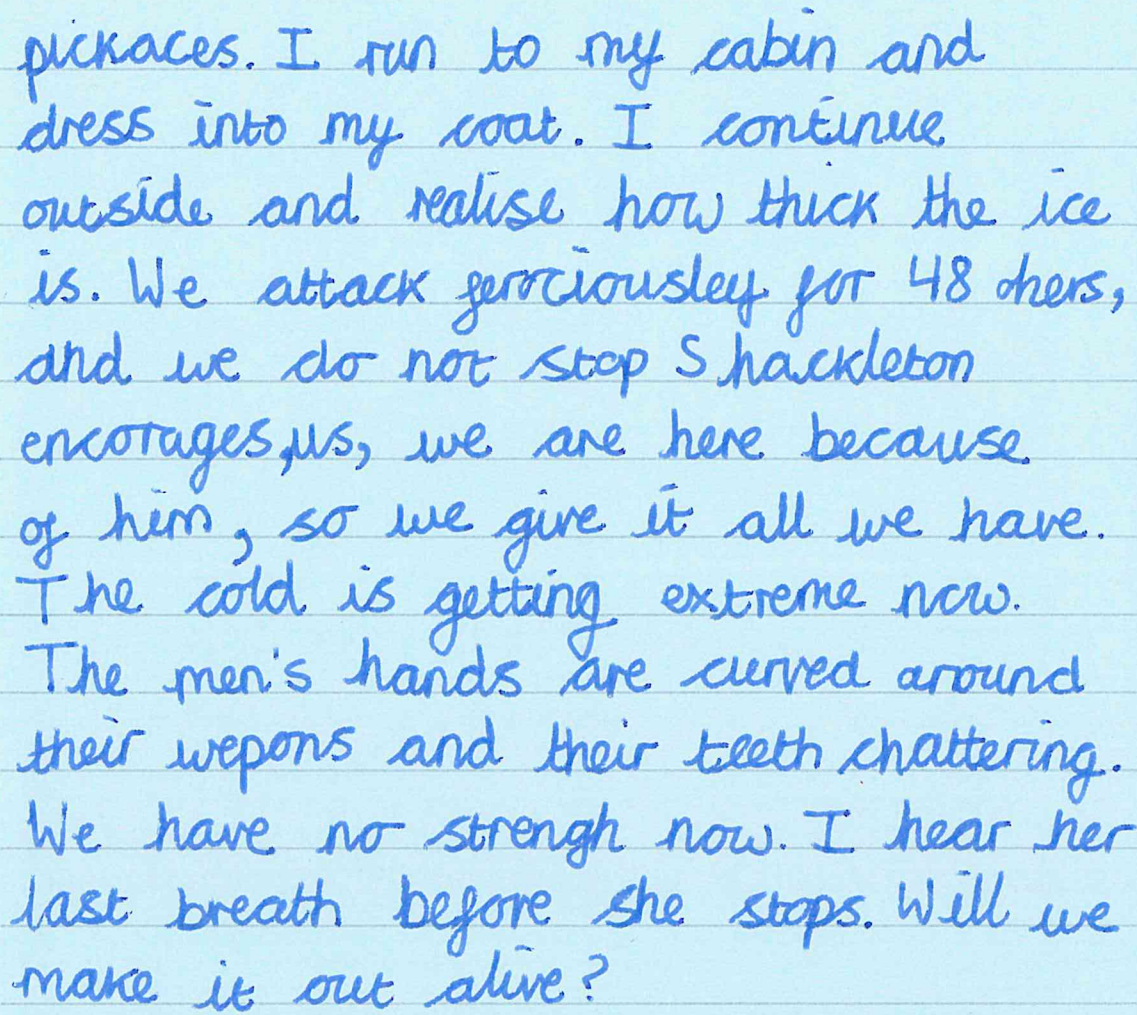 pickaces. I run to my cabin and
dress into my coat. I continue
outside and realise how thick the ice
is. We attack ferociousley for 48 ohers,
and we do not stop Shackleton
encorages,us, we are here because
of him, so we give it all we have.
The cold is getting extreme now.
The men's hands are curved around
their wepons and their teeth chattering.
We have no strengh now. I hear her
last breath before she stops. Will we
make it out alive?